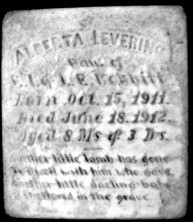 ALBERTA LEVERING
Dau. of
E. L. & I. R. Bobbitt
Born Oct. 15, 1911.
Died June 18, 1912.
Aged 8 Ms & 3 Ds.
Another little lamb has gone
To dwell with him who gave
Another little darling babe
Is sheltered in the grave.